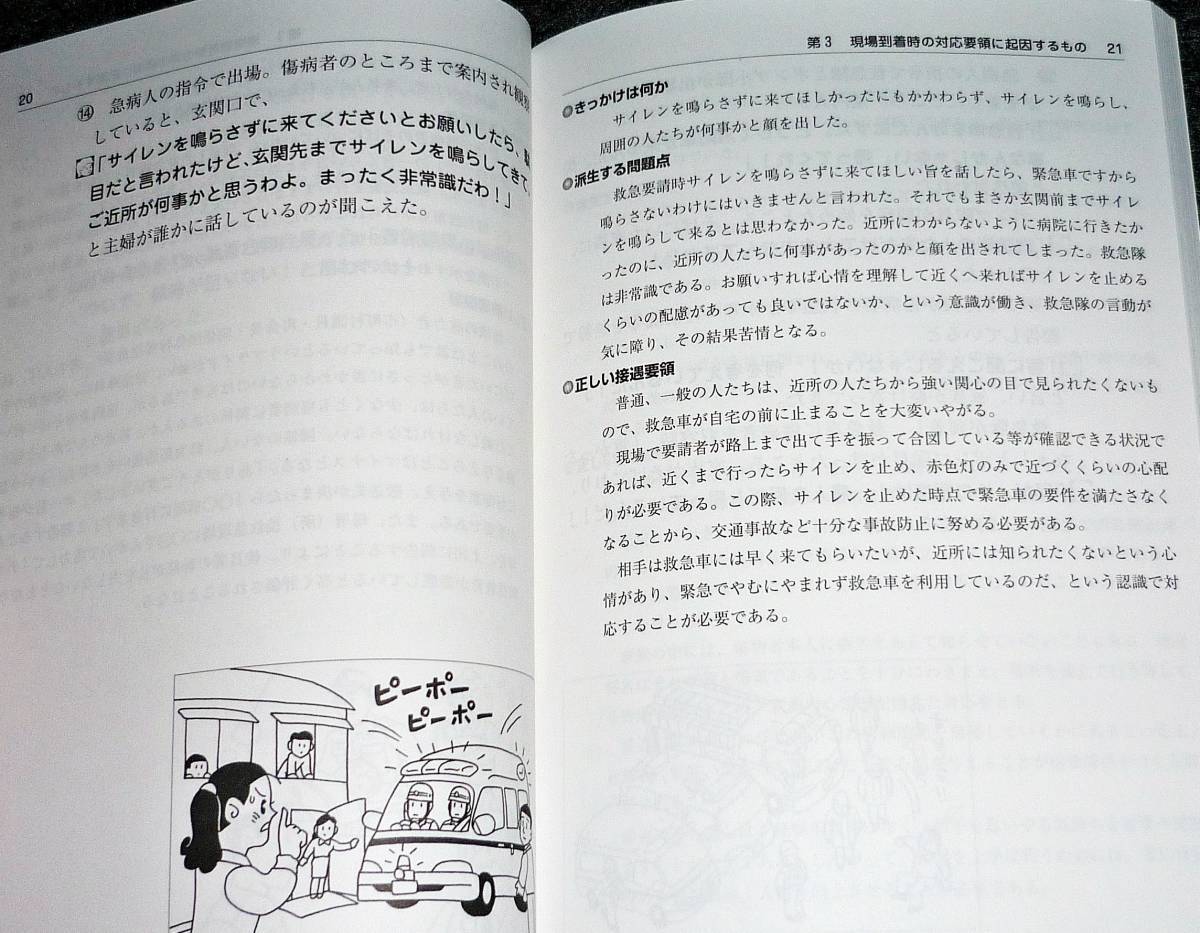 20
⑭ 急病人の指令で出場。傷病者のところまで案内され観察
していると、玄関口で、
「サイレンを鳴らさずに来てくださいとお願いしたら、駄
目だと言われたけど、玄関先までサイレンを鳴らしてきて、
ご近所が何事かと思うわよ。まったく非常識だわ！」
と主婦が誰かに話しているのが聞こえた。
ピーポー
ピーポー
第3 現場到着時の対応要領に起因するもの 21
きっかけは何か
サイレンを鳴らさずに来てほしかったにもかかわらず、サイレンを鳴らし、
周囲の人たちが何事かと顔を出した。
派生する問題点
救急要請時サイレンを鳴らさずに来てほしい旨を話したら、緊急車ですから
鳴らさないわけにはいきませんと言われた。それでもまさか玄関前までサイレ
ンを鳴らして来るとは思わなかった。近所にわからないように病院に行きたか
ったのに、近所の人たちに何事があったのかと顔を出されてしまった。救急隊
は非常識である。お願いすれば心情を理解して近くへ来ればサイレンを止める
くらいの配慮があっても良いではないか、という意識が働き、救急隊の言動が
気に障り、その結果苦情となる。
正しい接遇要領
普通、一般の人たちは、近所の人たちから強い関心の目で見られたくないも
ので、救急車が自宅の前に止まることを大変いやがる。
現場で要請者が路上まで出て手を振って合図している等が確認できる状況で
あれば、近くまで行ったらサイレンを止め、赤色灯のみで近づくくらいの心配
りが必要である。この際、サイレンを止めた時点で緊急車の要件を満たさなく
なることから、交通事故など十分な事故防止に努める必要がある。
相手は救急車には早く来てもらいたいが、近所には知られたくないという心
情があり、緊急でやむにやまれず救急車を利用しているのだ、という認識で対
応することが必要である。